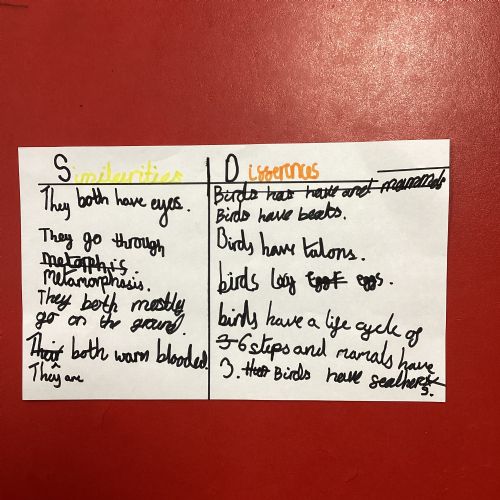 Similarities
They both have eyes.
They go through
metaphis
Metamorphosis.
They both mostly
go on the ground.
Their both warm blooded.
They are
Differences
Birds has have and mamamals
Birds have beaks.
Birds have talons.
birds lay eggs.
birds have a life cycle of
6 steps and mamals have
3. Birds have feathers
s.